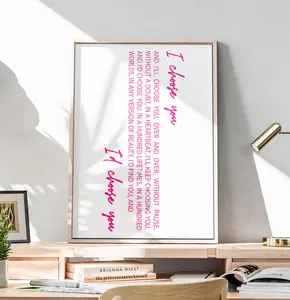 I choose you
AND I'LL CHOOSE YOU, OVER AND OVER, WITHOUT PAUSE,
WITHOUT A DOUBT, IN A HEARTBEAT, I'LL KEEP CHOOSING YOU.
AND I'D CHOOSE YOU; IN A HUNDRED LIFETIMES, IN A HUNDRED
WORLDS, IN ANY VERSION OF REALITY, I'D FIND YOU AND
I'd choose you
BRIANNA WIEST